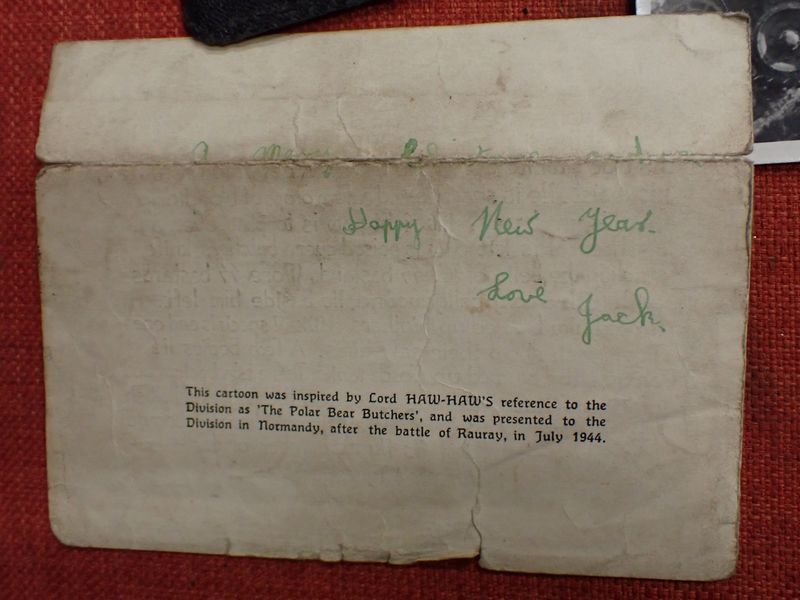 A Merry
Happy New Year.
Love Jack.
This cartoon was inspired by Lord HAW-HAW'S reference to the
Division as 'The Polar Bear Butchers', and was presented to the
Division in Normandy, after the battle of Rauray, in July 1944.